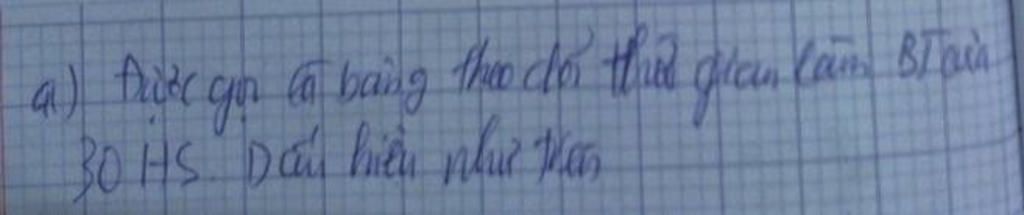 a) Được gọi là bảng theo dõi thời gian làm BT của
30 HS. Dấu hiệu như trên